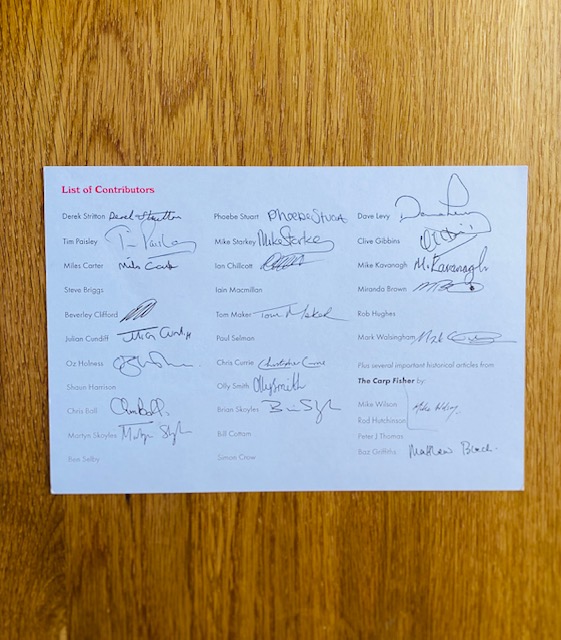 List of Contributors
Derek Stritton Derek Stritton
Tim Paisley Tim Paisley
Miles Carter Miles Carter
Steve Briggs
Beverley Clifford
Julian Cundiff Julian Cundiff
Oz Holness
Shaun Harrison
Chris Ball Chris Ball
Martyn Skoyles Martyn Skoyles
Ben Selby
Phoebe Stuart Phoebe Stuart
Mike Starkey Mike Starkey
Ian Chillcott
Iain Macmillan
Tom Maker Tom Maker
Paul Selman
Chris Currie Christopher Currie
Olly Smith Olly Smith
Brian Skoyles
Bill Cottam
Simon Crow
Dave Levy Dave Levy
Clive Gibbins
Mike Kavanagh M. Kavanagh
Miranda Brown
Rob Hughes
Mark Walsingham Mark
Plus several important historical articles from
The Carp Fisher by:
Mike Wilson Mike Wilson
Rod Hutchinson
Peter J Thomas
Baz Griffiths Matthew Black